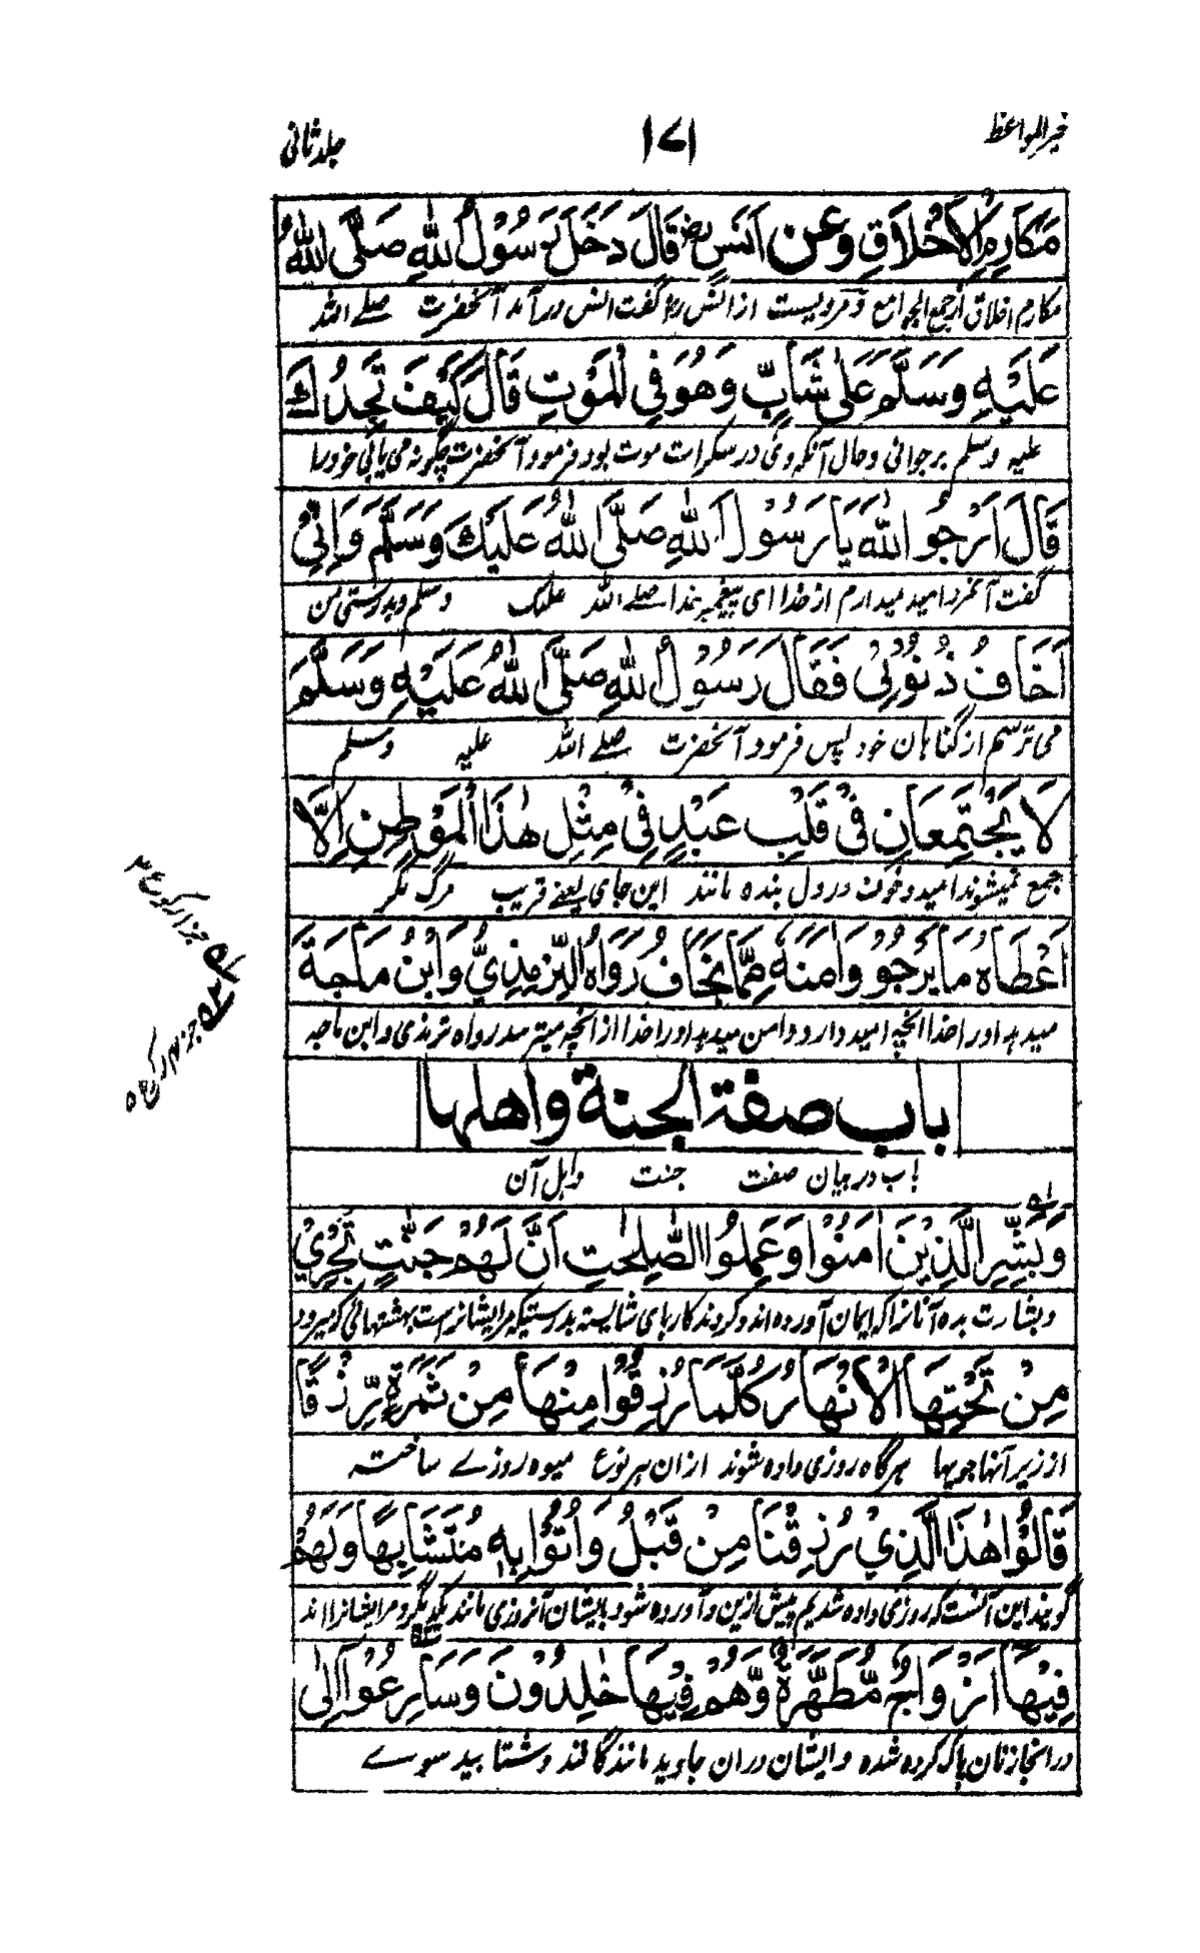 خیر المواعظ ۱۷۱ جلد ثانی
مَكَارِمِ الْاَخْلَاقِ وَعَنْ اَنَسٍ رض قَالَ دَخَلَ رَسُوْلُ اللّٰهِ صَلَّى اللّٰهُ
مکارم اخلاق از جمع الجوامع و مرویست از انس رض گفت انس درآمد آنحضرت صلے اللہ
عَلَيْهِ وَسَلَّمَ عَلٰى شَابٍّ وَهُوَ فِي الْمَوْتِ قَالَ كَيْفَ تَجِدُكَ
علیہ وسلم بر جوانی و حال آنکہ وی در سکرات موت بود فرمود آنحضرت چگونہ می یابی خود را
قَالَ اَرْجُو اللّٰهَ يَا رَسُوْلَ اللّٰهِ صَلَّى اللّٰهُ عَلَيْكَ وَسَلَّمَ وَاِنِّيْ
گفت آنمرد امید میدارم از خدا ای پیغمبر خدا صلے اللہ علیک وسلم و بدرستی من
اَخَافُ ذُنُوْبِيْ فَقَالَ رَسُوْلُ اللّٰهِ صَلَّى اللّٰهُ عَلَيْهِ وَسَلَّمَ
می ترسم از گناہان خود پس فرمود آنحضرت صلے اللہ علیہ وسلم
لَا يَجْتَمِعَانِ فِيْ قَلْبِ عَبْدٍ فِيْ مِثْلِ هٰذَا الْمَوْطِنِ اِلَّا
جمع نمیشوند امید و خوف در دل بندہ مانند این جای یعنے قریب مرگ مگر
اَعْطَاهُ مَا يَرْجُوْ وَاٰمَنَهُ مِمَّا يَخَافُ رَوَاهُ التِّرْمِذِيُّ وَابْنُ مَاجَةَ
میدہد اورا خدا آنچہ امید دارد و امن میدہد اورا خدا از آنچہ میترسد رواہ ترمذی و ابن ماجہ
باب صفۃ الجنۃ واھلھا
باب در بیان صفت جنت و اہل آن
وَبَشِّرِ الَّذِيْنَ اٰمَنُوْا وَعَمِلُوا الصّٰلِحٰتِ اَنَّ لَهُمْ جَنّٰتٍ تَجْرِيْ
و بشارت بدہ آنانرا کہ ایمان آوردہ اند و کردند کارہای شایستہ بدرستیکہ مر ایشانراست بہشتہائی کہ میرود
مِنْ تَحْتِهَا الْاَنْهَارُ كُلَّمَا رُزِقُوْا مِنْهَا مِنْ ثَمَرَةٍ رِّزْقًا
از زیر آنہا جویہا ہر گاہ روزی دادہ شوند ازان ہر نوع میوہ روزے ساختہ
قَالُوْا هٰذَا الَّذِيْ رُزِقْنَا مِنْ قَبْلُ وَاُتُوْا بِهٖ مُتَشَابِهًا وَلَهُمْ
گویند این آنست کہ روزی دادہ شدیم پیش ازین و آوردہ شود بایشان آنروزی مانند یکدیگر و مر ایشانرا اند
فِيْهَا اَزْوَاجٌ مُّطَهَّرَةٌ وَّهُمْ فِيْهَا خٰلِدُوْنَ وَسَارِعُوْا اِلٰى
در انجا زنان پاک کردہ شدہ و ایشان دران جاوید مانندگانند و شتابید سوے